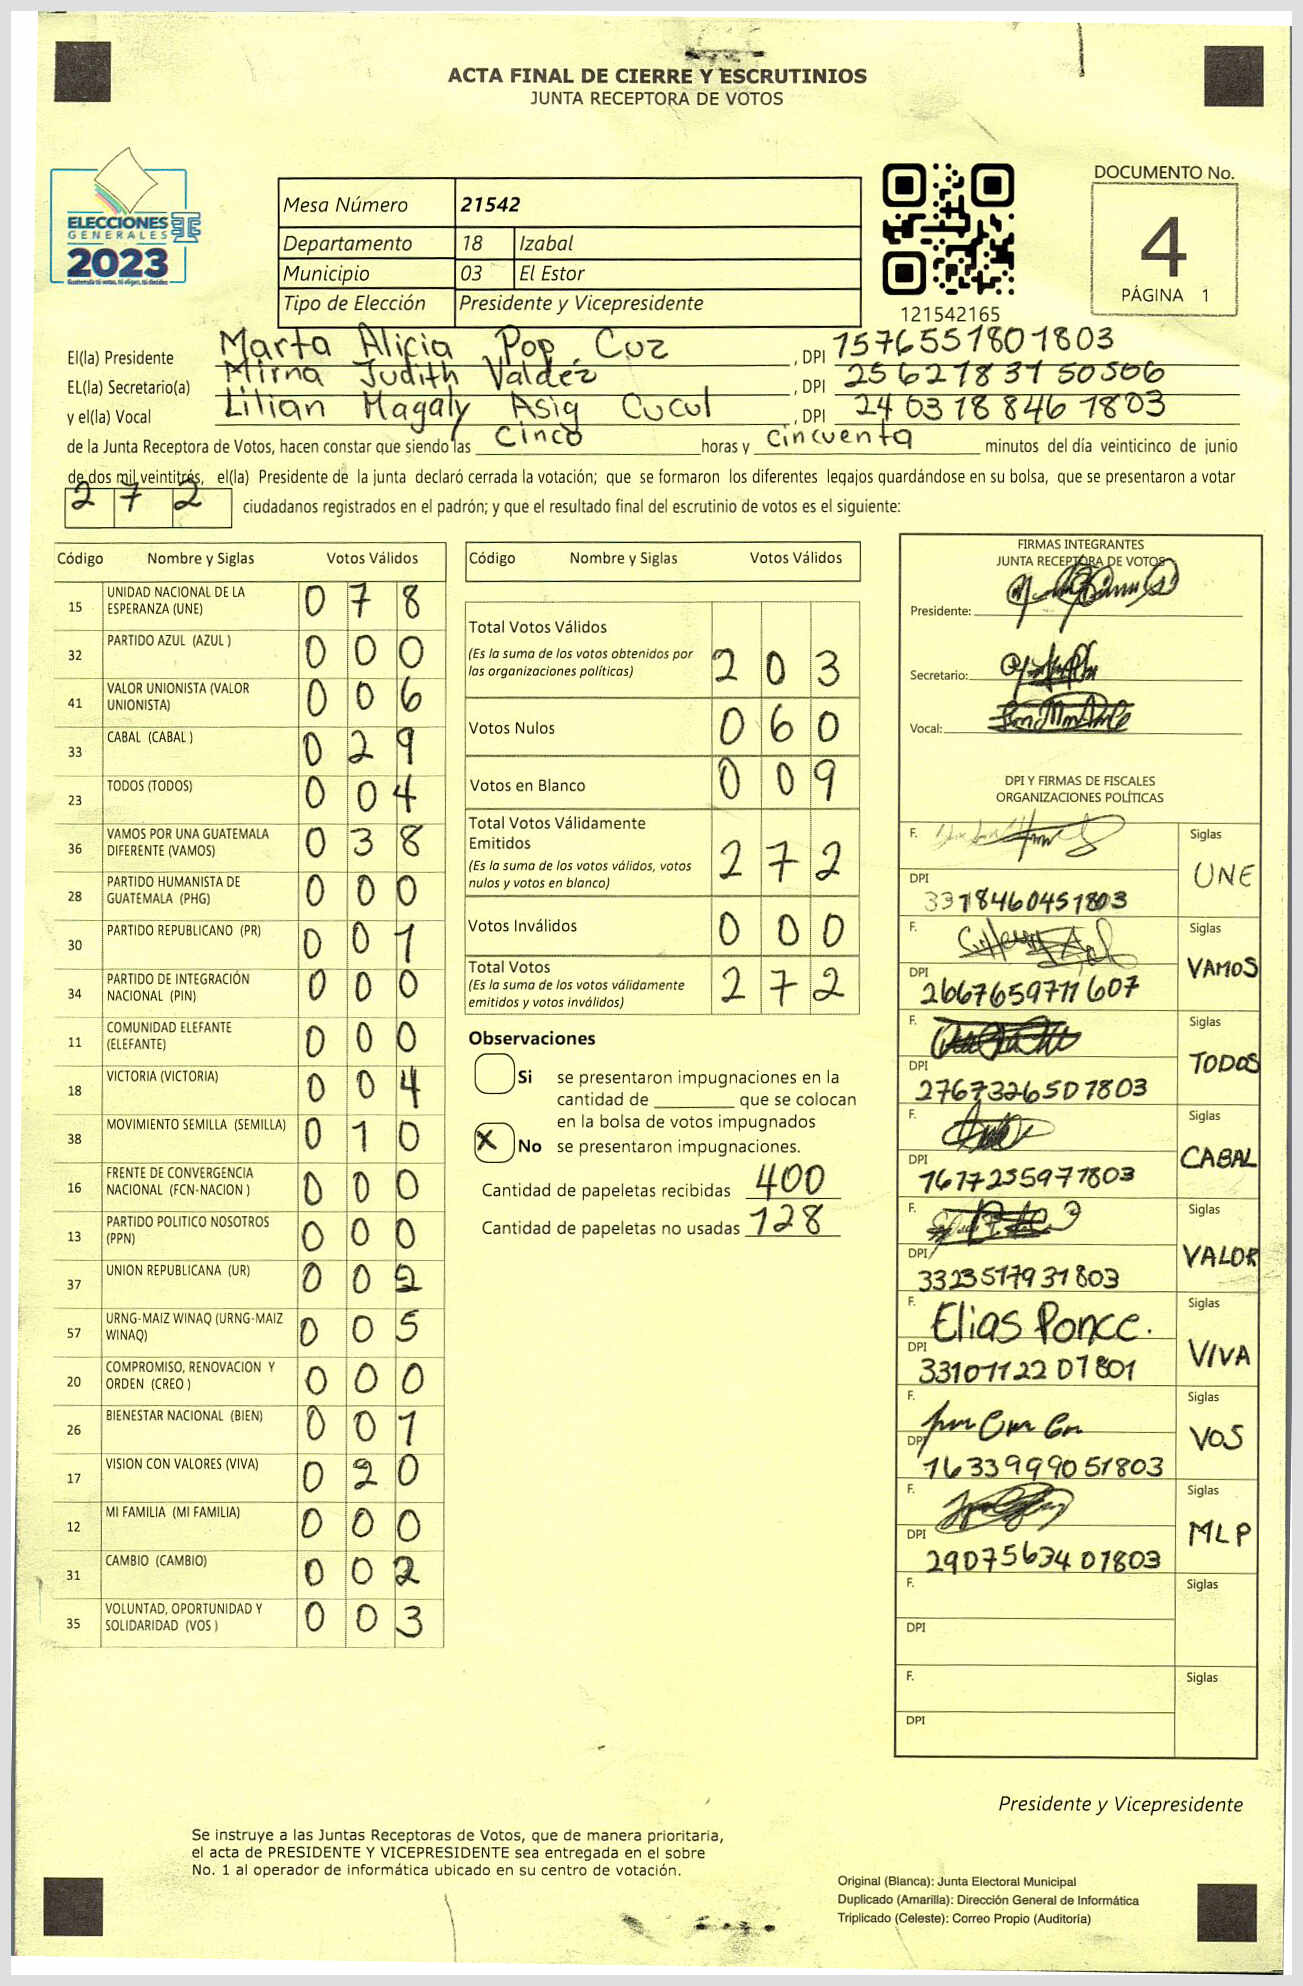 ACTA FINAL DE CIERRE Y ESCRUTINIOS
JUNTA RECEPTORA DE VOTOS
ELECCIONES
GENERALES
2023
Mesa Número 21542
Departamento 18 Izabal
Municipio 03 El Estor
Tipo de Elección Presidente y Vicepresidente
121542165
DOCUMENTO No.
4
PÁGINA 1
El(la) Presidente Marta Alicia Pop Cuz, DPI 1576551801803
EL(la) Secretario(a) Mirna Judith Valdéz, DPI 2562183150506
y el(la) Vocal Lilian Magaly Asig Cucul, DPI 2403188461803
de la Junta Receptora de Votos, hacen constar que siendo las cinco horas y cincuenta minutos del día veinticinco de junio
de dos mil veintitrés, el(la) Presidente de la junta declaró cerrada la votación; que se formaron los diferentes legajos guardándose en su bolsa, que se presentaron a votar
272 ciudadanos registrados en el padrón; y que el resultado final del escrutinio de votos es el siguiente:
Código Nombre y Siglas Votos Válidos
15 UNIDAD NACIONAL DE LA ESPERANZA (UNE) 078
32 PARTIDO AZUL (AZUL ) 000
41 VALOR UNIONISTA (VALOR UNIONISTA) 006
33 CABAL (CABAL ) 029
23 TODOS (TODOS) 004
36 VAMOS POR UNA GUATEMALA DIFERENTE (VAMOS) 038
28 PARTIDO HUMANISTA DE GUATEMALA (PHG) 000
30 PARTIDO REPUBLICANO (PR) 001
34 PARTIDO DE INTEGRACIÓN NACIONAL (PIN) 000
11 COMUNIDAD ELEFANTE (ELEFANTE) 000
18 VICTORIA (VICTORIA) 004
38 MOVIMIENTO SEMILLA (SEMILLA) 010
16 FRENTE DE CONVERGENCIA NACIONAL (FCN-NACION ) 000
13 PARTIDO POLITICO NOSOTROS (PPN) 000
37 UNION REPUBLICANA (UR) 002
57 URNG-MAIZ WINAQ (URNG-MAIZ WINAQ) 005
20 COMPROMISO, RENOVACION Y ORDEN (CREO ) 000
26 BIENESTAR NACIONAL (BIEN) 001
17 VISION CON VALORES (VIVA) 020
12 MI FAMILIA (MI FAMILIA) 000
31 CAMBIO (CAMBIO) 002
35 VOLUNTAD, OPORTUNIDAD Y SOLIDARIDAD (VOS ) 003
Código Nombre y Siglas Votos Válidos
Total Votos Válidos
(Es la suma de los votos obtenidos por
las organizaciones políticas) 203
Votos Nulos 060
Votos en Blanco 009
Total Votos Válidamente
Emitidos
(Es la suma de los votos válidos, votos
nulos y votos en blanco) 272
Votos Inválidos 000
Total Votos
(Es la suma de los votos válidamente
emitidos y votos inválidos) 272
Observaciones
Si se presentaron impugnaciones en la
cantidad de ________ que se colocan
en la bolsa de votos impugnados
X No se presentaron impugnaciones.
Cantidad de papeletas recibidas 400
Cantidad de papeletas no usadas 128
FIRMAS INTEGRANTES
JUNTA RECEPTORA DE VOTOS
Presidente:
Secretario:
Vocal:
DPI Y FIRMAS DE FISCALES
ORGANIZACIONES POLÍTICAS
F. Siglas
DPI 3318460451803 UNE
F. Siglas
DPI 2667659711607 VAMOS
F. Siglas
DPI 2767326501803 TODOS
F. Siglas
DPI 1617235971803 CABAL
F. Siglas
DPI 3323517931803 VALOR
F. Elias Ponce. Siglas
DPI 3310112201801 VIVA
F. Siglas
DPI 1633999051803 VOS
F. Siglas
DPI 2907563401803 MLP
F. Siglas
DPI
F. Siglas
DPI
Presidente y Vicepresidente
Se instruye a las Juntas Receptoras de Votos, que de manera prioritaria,
el acta de PRESIDENTE Y VICEPRESIDENTE sea entregada en el sobre
No. 1 al operador de informática ubicado en su centro de votación.
Original (Blanca): Junta Electoral Municipal
Duplicado (Amarilla): Dirección General de Informática
Triplicado (Celeste): Correo Propio (Auditoría)